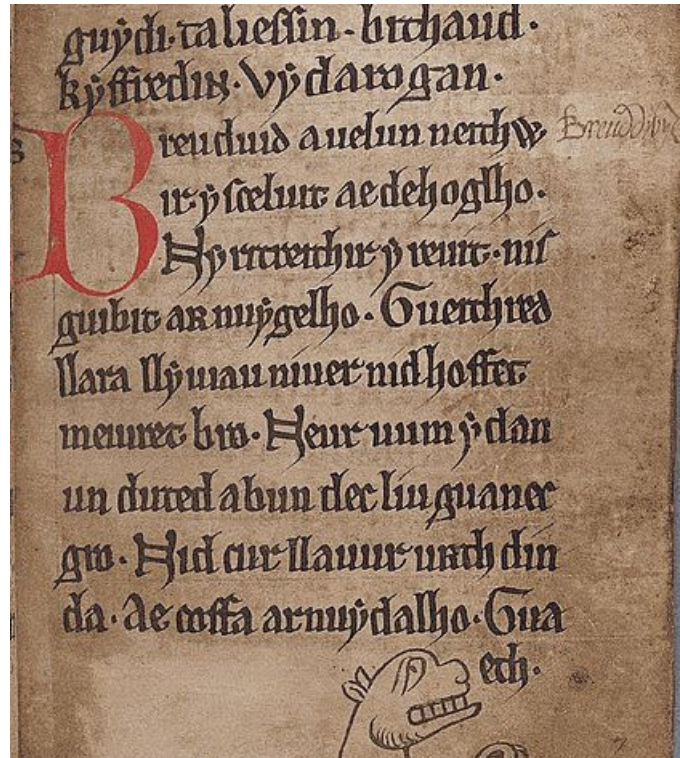 guẏdi·taliessin·bithaud·
kẏffredin·vẏdarogan·
Breuduid auelun neithw
ir·ẏ sceluir ae dehoglho·
Nẏ ritreithir ẏ reuit·nis
guibit ar nuẏgelho·Gueithred
llara llẏuiau niuer nid hoffet
meiuret bro·Neur uum ẏ dan
un duted a bun dec liu guanec
gro·Nid cur llauur urth din
da·Ae coffa arnuẏdalho·Gua
eth·
Breuddwyd